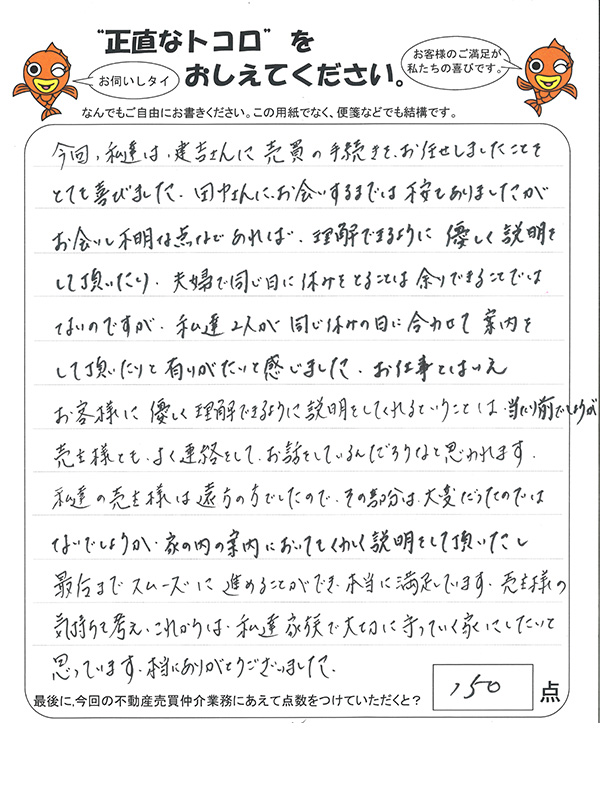 "正直なトコロ"を
おしえてください。
お伺いしタイ
お客様のご満足が
私たちの喜びです。
なんでもご自由にお書きください。この用紙でなく、便箋などでも結構です。
今回、私達は、建吉さんに売買の手続きを、お任せしましたことを
とても喜びました。田中さんに、お会いするまでは不安もありましたが
お会いし不明な点などあれば、理解できるように優しく説明を
して頂いたり、夫婦で同じ日に休みをとることは余りできることでは
ないのですが、私達2人が同じ休みの日に合わせて案内を
して頂いたりと有りがたいと感じました。お仕事とはいえ
お客様に優しく理解できるように説明をしてくれるということは、当たり前でしょうが
売主様とも、よく連絡をして、お話をしているんだろうなと思われます。
私達の売主様は遠方の方でしたので、その部分は、大変だったのでは
ないでしょうか。家の内の案内においてもくわしく説明をして頂いたし
最后までスムーズに進めることができ、本当に満足しています。売主様の
気持ちも考え、これからは、私達家族で大切に守っていく家にしたいと
思っています。本当にありがとうございました。
最後に、今回の不動産売買仲介業務にあえて点数をつけていただくと?
150
点